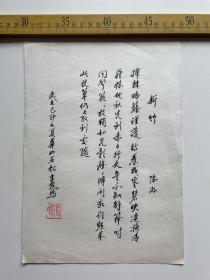 新竹 陆游
插棘编篱谨護持养成寒碧映涟漪清
风掠地秋先到赤日行天午不知解箨时
闻声簌簌放梢初见影离离归闲我欲频来
此枕簟仍教到处随
己卯之夏